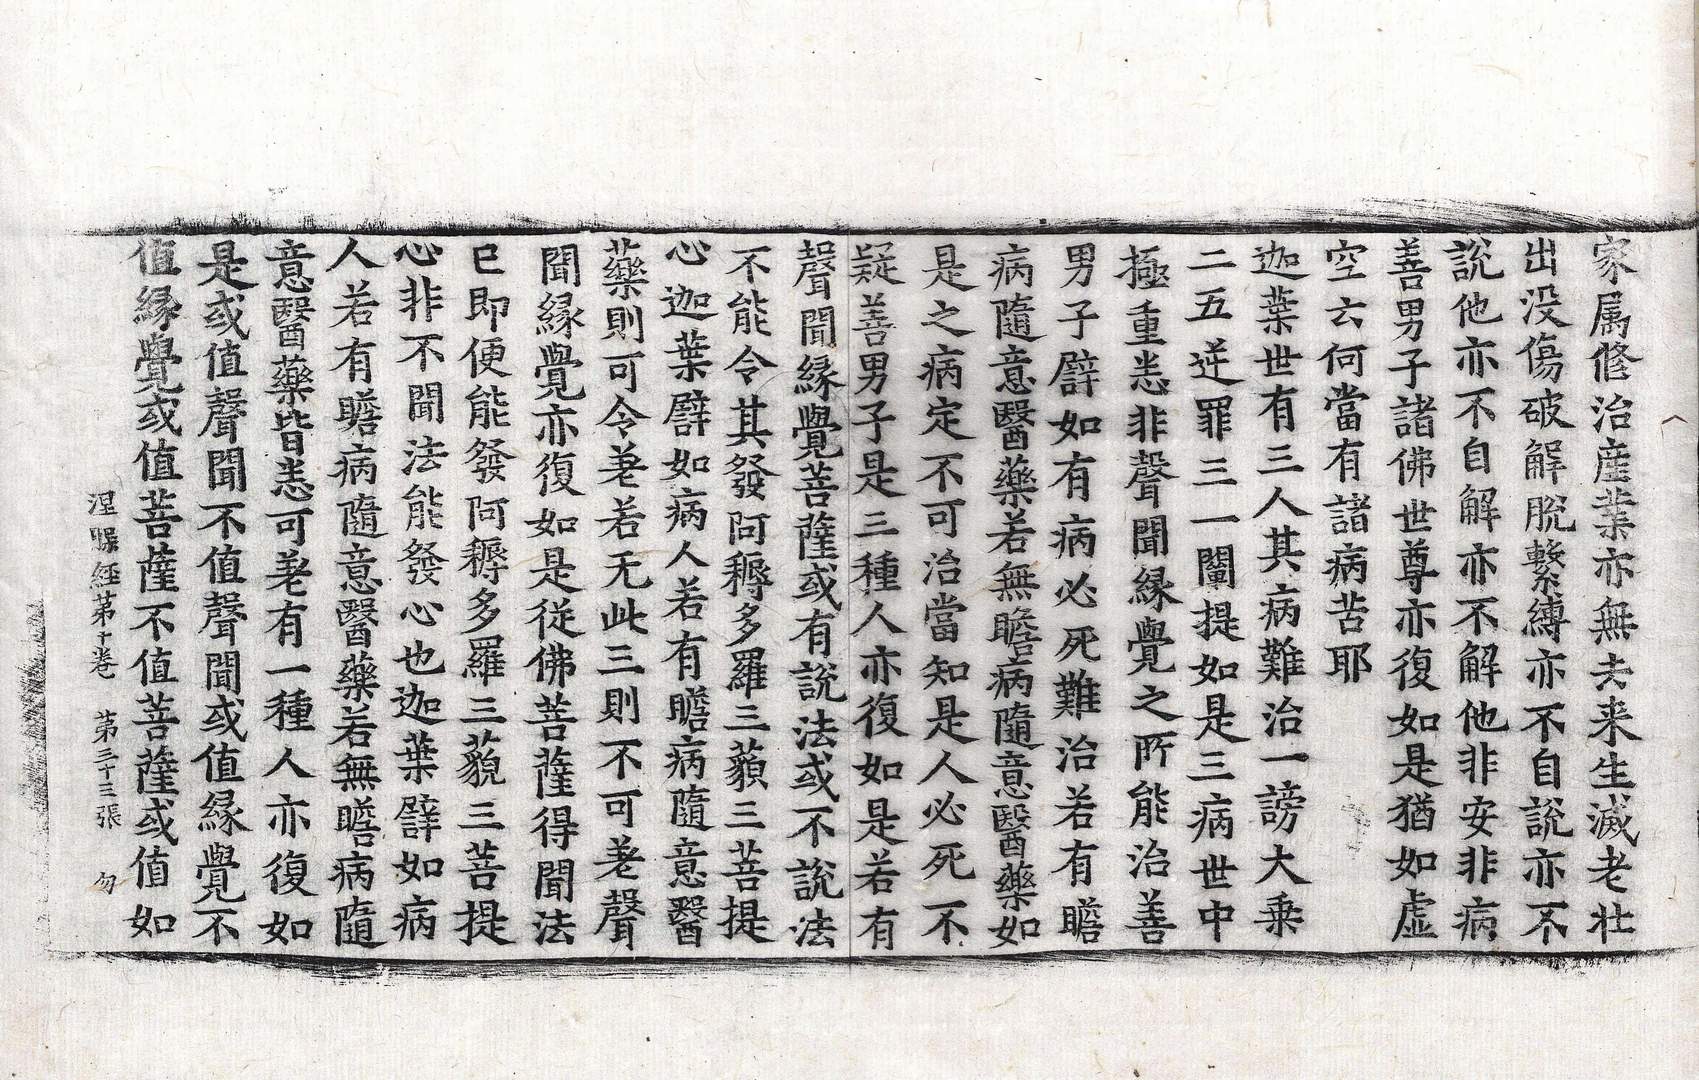 家属修治産業亦無去来生滅老壮
出没傷破解脫繫縛亦不自說亦不
說他亦不自解亦不解他非安非病
善男子諸佛世尊亦復如是猶如虛
空云何當有諸病苦耶
迦葉世有三人其病難治一謗大乗
二五逆罪三一闡提如是三病世中
極重悉非聲聞縁覺之所能治善
男子譬如有病必死難治若有瞻
病隨意醫藥若無瞻病隨意醫藥如
是之病定不可治當知是人必死不
疑善男子是三種人亦復如是若有
聲聞縁覺菩薩或有說法或不說法
不能令其發阿耨多羅三藐三菩提
心迦葉譬如病人若有瞻病隨意醫
藥則可令差若无此三則不可差聲
聞縁覺亦復如是従佛菩薩得聞法
已即便能發阿耨多羅三藐三菩提
心非不聞法能發心也迦葉譬如病
人若有瞻病隨意醫藥若無瞻病隨
意醫藥皆悉可差有一種人亦復如
是或值聲聞不值聲聞或值縁覺不
值縁覺或值菩薩不值菩薩或值如
涅槃經第十卷 第三十三張 勿